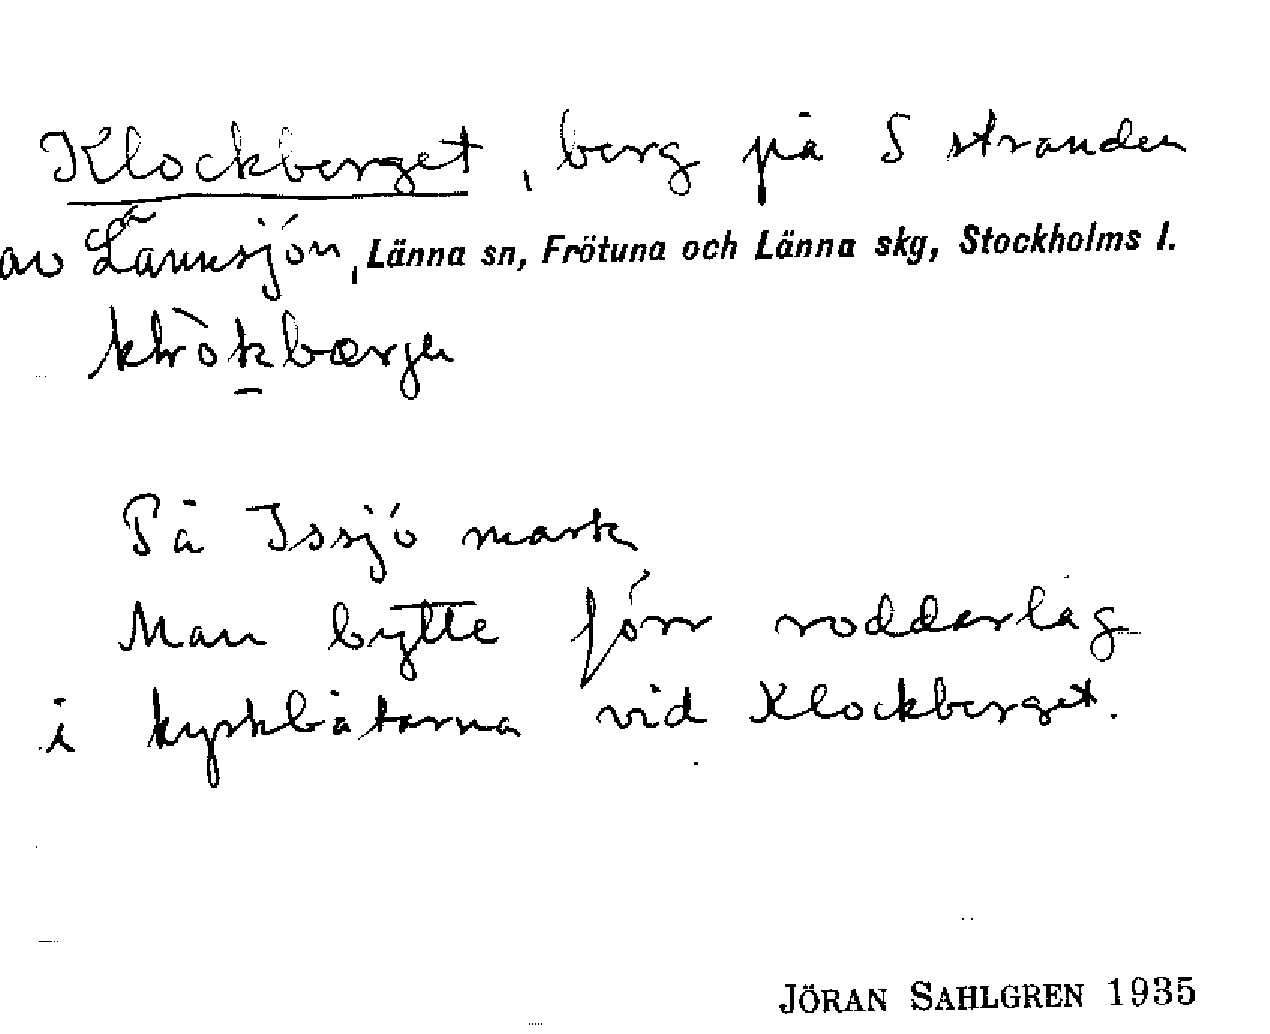 Klockberget, berg på S stranden
av Lännsjön, Länna sn, Frötuna och Länna skg, Stockholms l.
På Issjö mark
Man bytte förr roddarlag
i kyrkbåtarna vid Klockberget.
JÖRAN SAHLGREN 1935